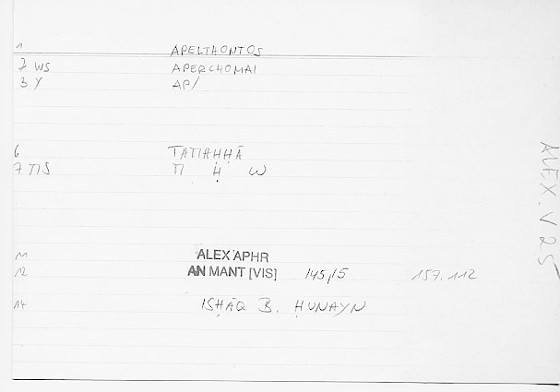 1 APELTHONTOS
2 WS APERCHOMAI
3 Y AP/
6 TANAḤḤĀ
7 N Ḥ W
11 ALEX APHR
12 AN MANT [VIS] 145,15 157.112
14 ISḤĀQ B. ḤUNAYN
ALEX. V 25